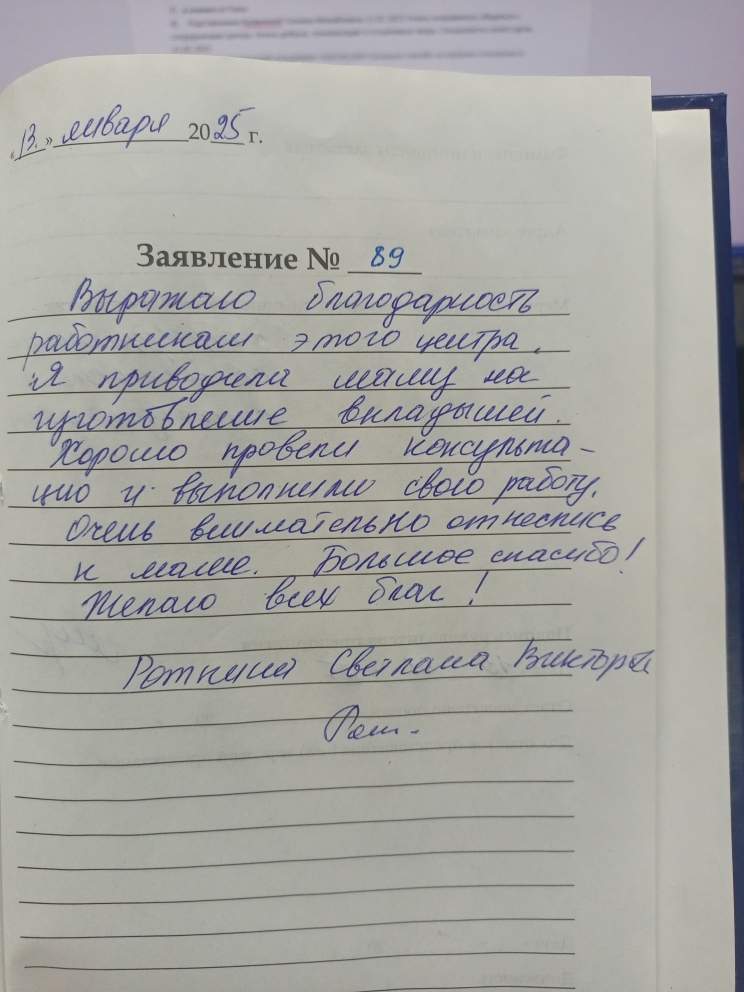 «13.» января 2025 г.
Заявление № 89
Выражаю благодарность
работникам этого центра.
Я приводила маму на
изготовление вкладышей.
Хорошо провели консульта-
цию и выполнили свою работу.
Очень внимательно отнеслись
к маме. Большое спасибо!
Желаю всех благ!
Светлана Виктор